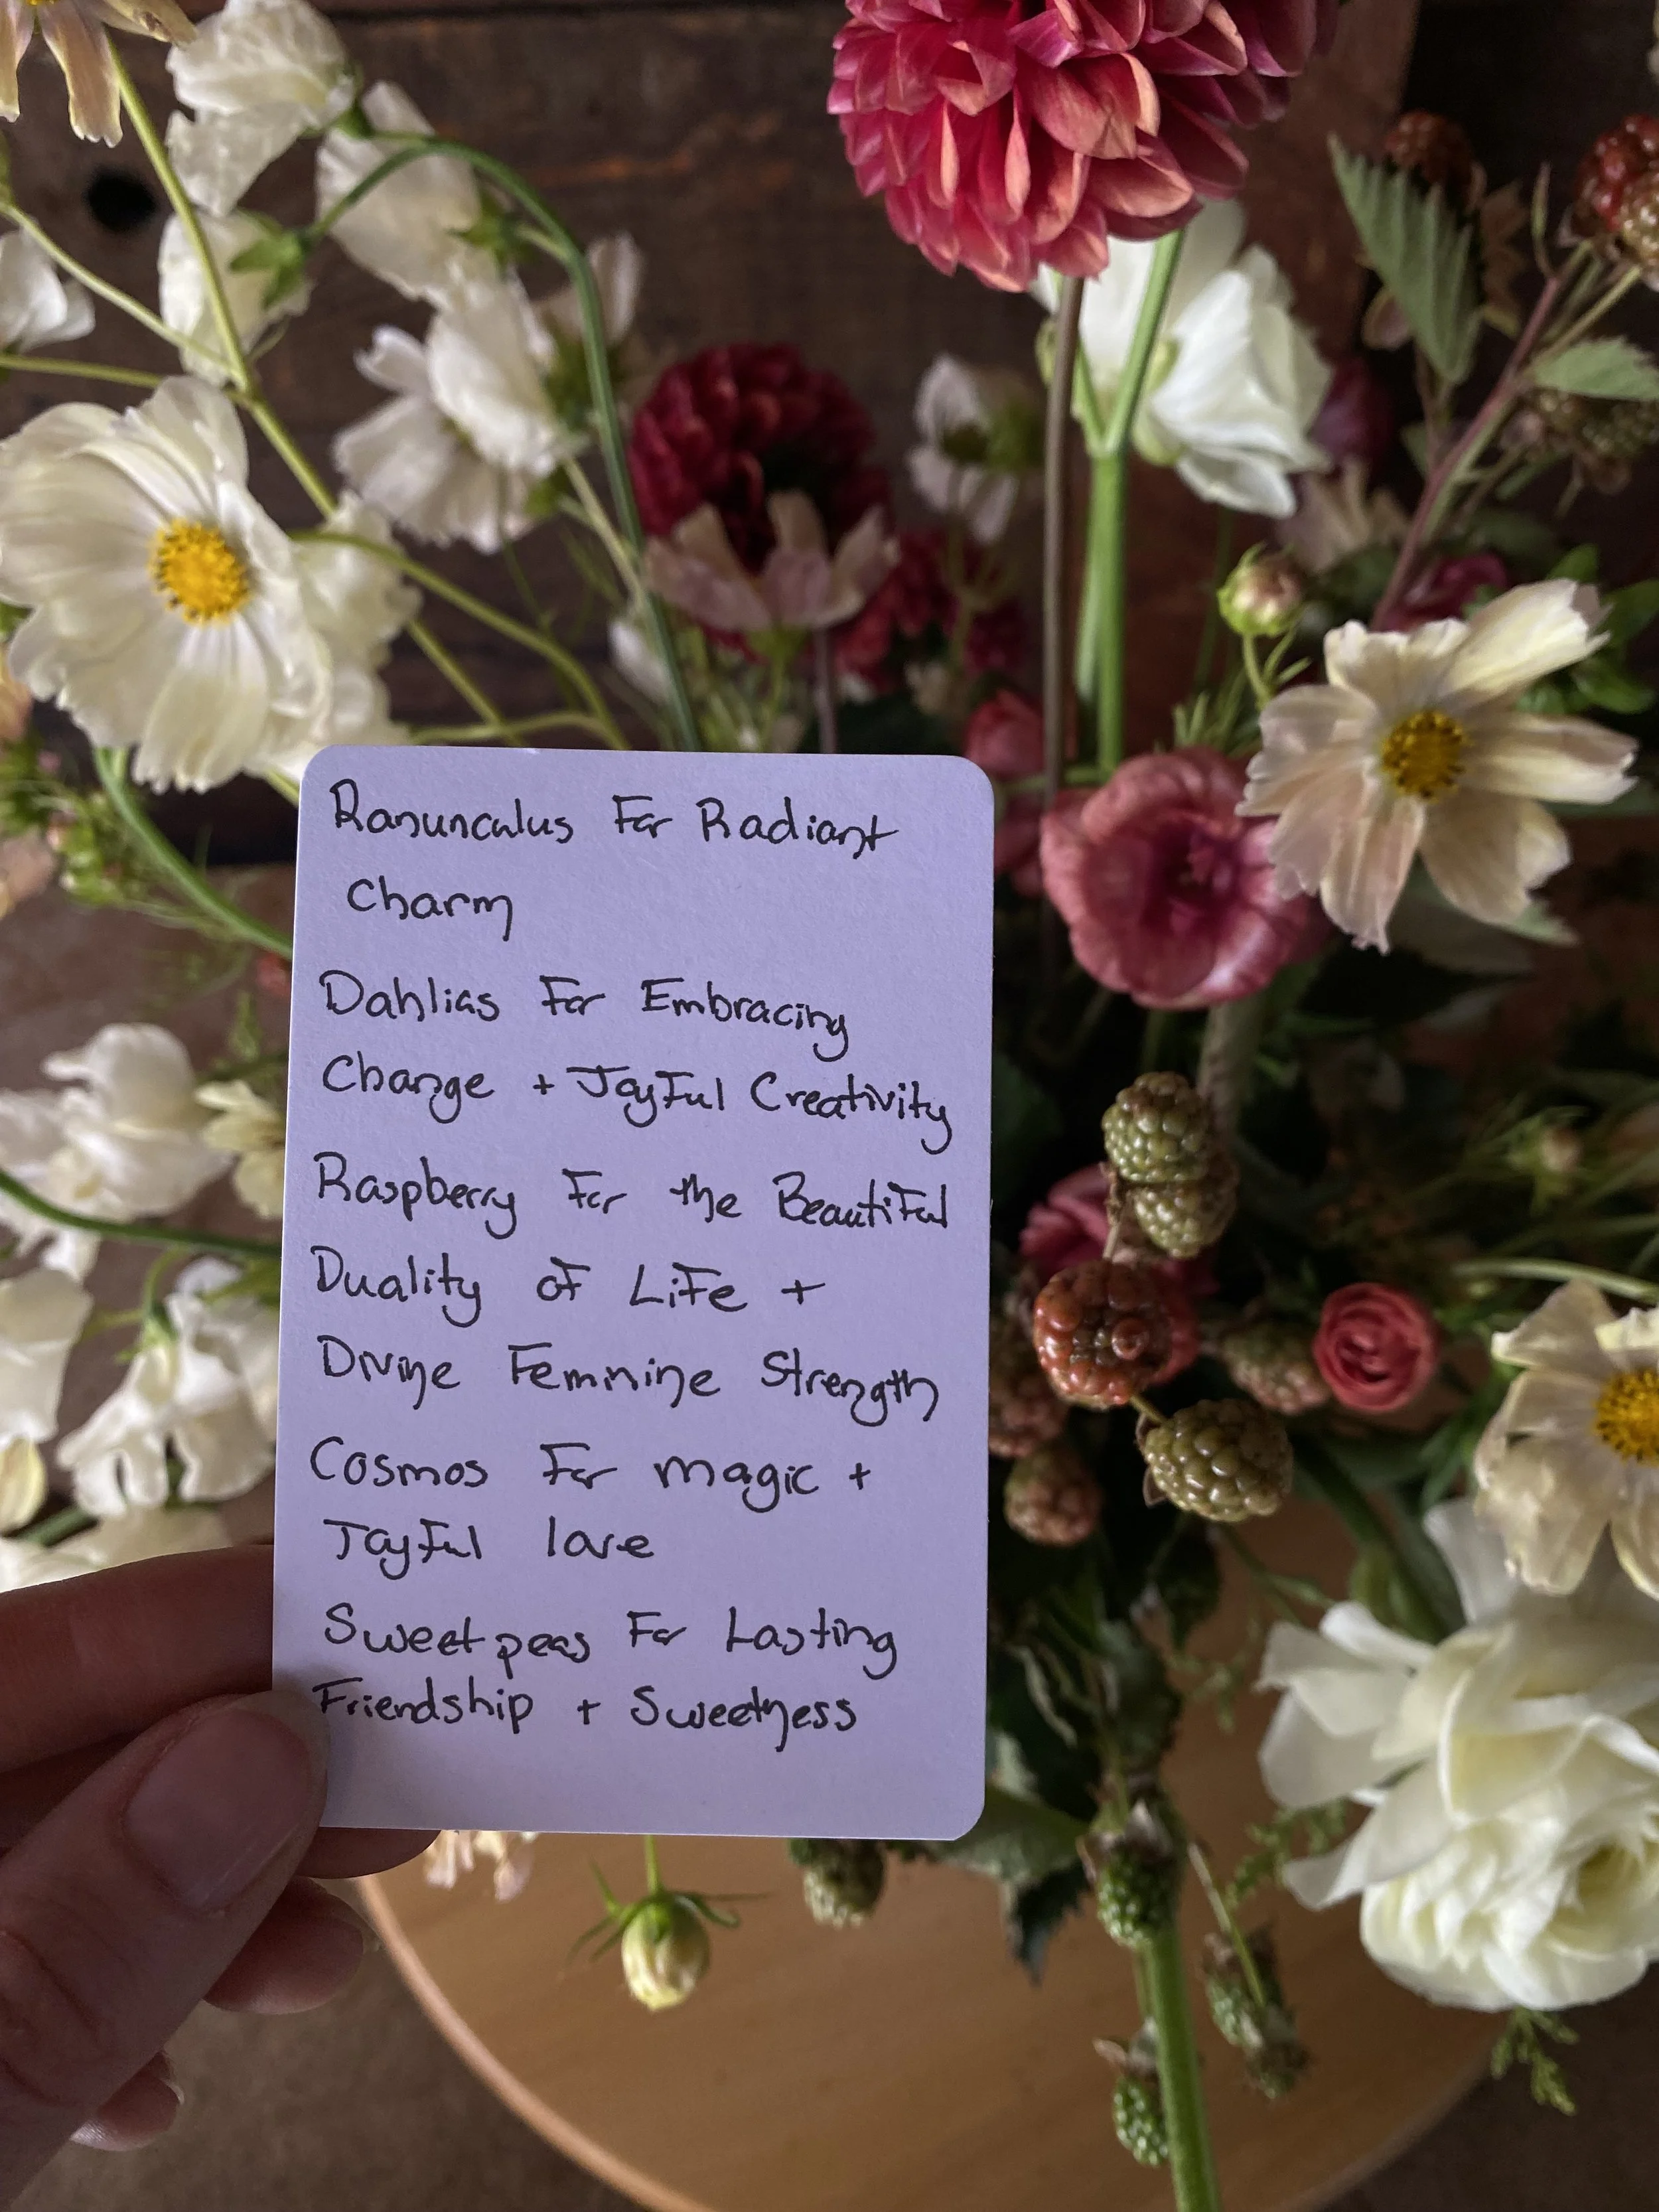 Ranunculus For Radiant
Charm
Dahlias For Embracing
Change + Joyful Creativity
Raspberry For the Beautiful
Duality of Life +
Divine Feminine Strength
Cosmos For magic +
Joyful love
Sweetpeas For Lasting
Friendship + Sweetness